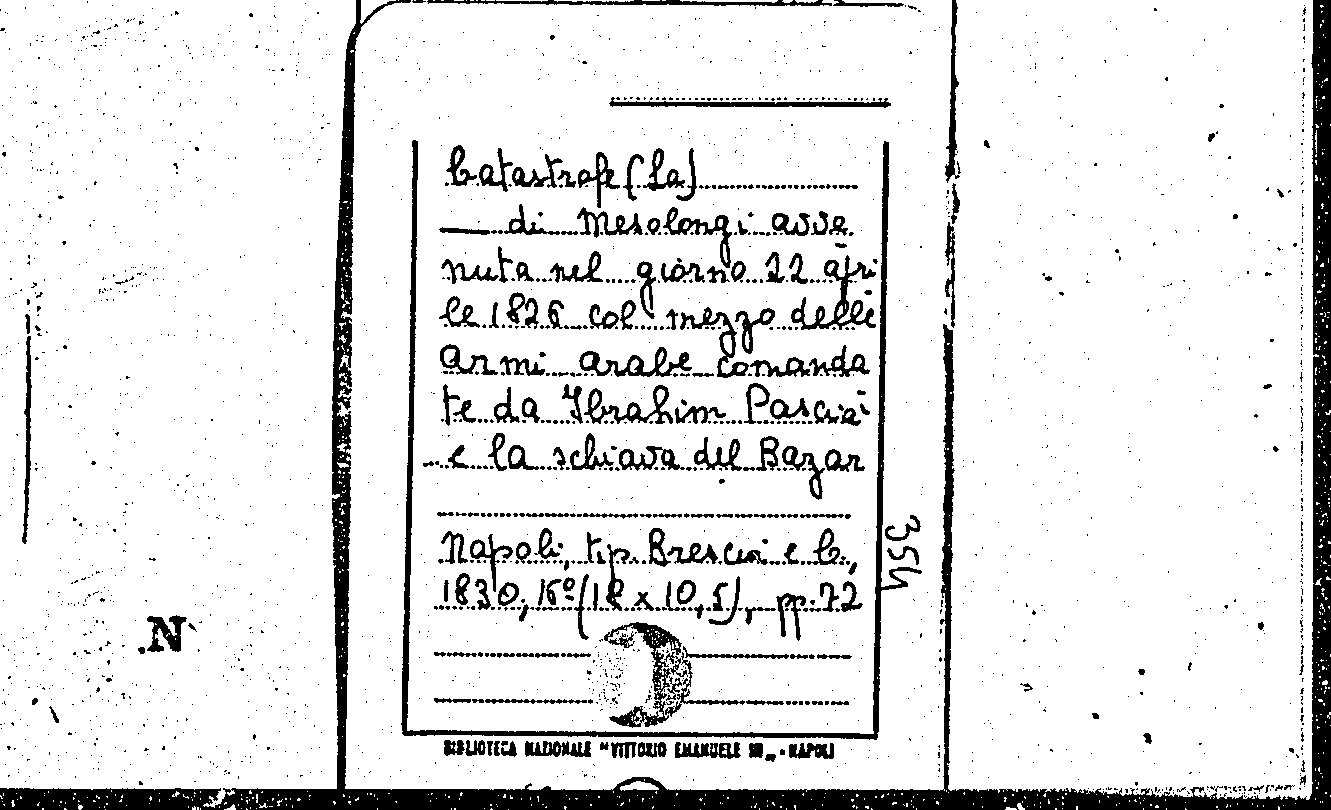 Catastrofe (La)
— di Mesolongi avve
nuta nel giorno 22 apri
le 1826 col mezzo delle
armi arabe comanda
te da Ibrahim Pascià
e la schiava del Bazar
Napoli, tip. Brescia e C.,
1830, 16º (18 x 10,5), pp. 72
354
.N
BIBLIOTECA NAZIONALE "VITTORIO EMANUELE III„ - NAPOLI